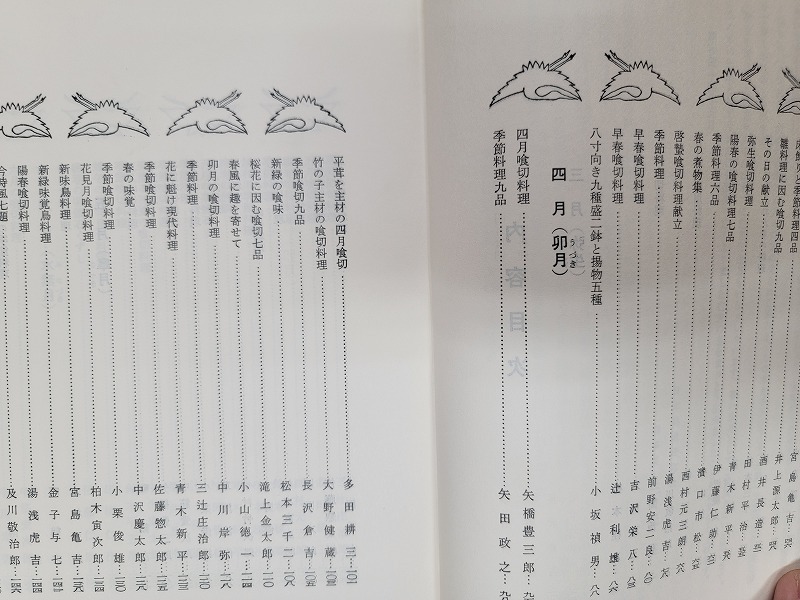 雛料理に因む喰切九品……井上源太郎
その日の献立……酒井長造
弥生喰切料理……田村平治
陽春の喰切料理七品……青木新平
季節料理六品……伊藤仁助
春の煮物集……濱口市松
啓蟄喰切料理献立……西村元三朗
早春喰切料理……湯浅虎吉
季節料理……前野安二良…八〇
早春喰切料理……吉沢栄八
早春喰切料理……辻本利雄
八寸向き九種盛二鉢と揚物五種……小坂禎男
四月(卯月)
うづき
四月喰切料理……矢橋豊三郎
季節料理九品……矢田政之
平茸を主材の四月喰切……多田耕三…一〇一
竹の子主材の喰切料理……大野健蔵…一〇三
季節喰切九品……長沢倉吉…一〇五
新緑の喰味……松本三千二…一〇八
桜花に因む喰切七品……滝上金太郎…一一〇
春風に趣を寄せて……小山徳一…一一四
卯月の喰切料理……中川岸弥…一一六
季節料理……三辻庄治郎…一二〇
花に魁け現代料理……青木新平…一二三
季節喰切料理……佐藤惣太郎…一二五
春の味覚……中沢慶太郎…一二八
季節喰切料理……小栗俊雄…一三〇
花見月喰切料理……柏木寅次郎…一三四
新味鳥料理……宮島亀吉…一三九
新緑味覚鳥料理……金子与七…一四一
陽春喰切料理……湯浅虎吉…一四四
今時風七題……及川敬治郎…一四六